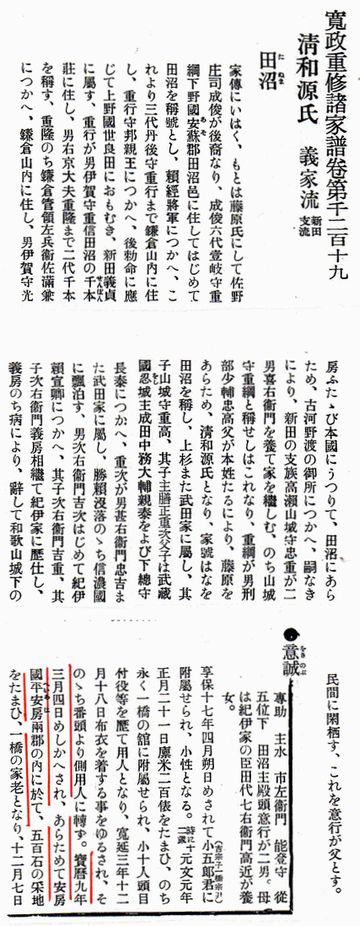 寬政重修諸家譜卷第千二百十九
清和源氏 義家流 新田支流
田沼
たぬま
家傳にいはく、もとは藤原氏にして佐野
庄司成俊が後裔なり、成俊六代壹岐守重
綱下野國安蘇郡田沼邑に住してはじめて
田沼を稱號とし、賴經將軍につかへ、こ
れより三代丹後守重行まで鎌倉山內に住
し、重行守邦親王につかへ、後勅命に應
じて上野國世良田におもむき、新田義貞
に屬す、重行が男伊賀守重信田沼の千本
莊に住し、男右京大夫重隆まで二代千本
を稱す、重隆のち鎌倉管領左兵衞佐滿兼
につかへ、鎌倉山內に住し、男伊賀守光
房ふたゝび本國にうつりて、田沼にあら
ため、古河野渡の御所につかへ、嗣なき
により、新田の支族高瀨山城守忠重が二
男喜右衞門を養て家を繼しむ、のち山城
守重綱と稱せしはこれなり、重綱が男刑
部少輔忠高父が本姓たるにより、藤原を
あらため、淸和源氏となり、家號はなを
田沼を稱し、上杉また武田家に屬し、其
子山城守重高、其子主膳正重次父子は武藏
國忍城主成田中務大輔親泰をよび下總守
長泰につかへ、重次が男甚右衞門忠吉ま
た武田家に屬し、勝賴沒落のゝち信濃國
に飄泊す、男次右衞門吉次はじめて紀伊
賴宣卿につかへ、其子次右衞門吉重、其
子次右衞門義房相繼て紀伊家に歷仕し、
義房のち病により、辭して和歌山城下の
民間に閑栖す、これを意行が父とす。
●意誠
をきのぶ
專助 主水 市左衞門 能登守 從
五位下 田沼主殿頭意行が二男。母
は紀伊家の臣田代七右衞門高近が養
女。
享保十七年四月朔日めされて小五郎君に
附屬せられ、小性となる。元文元年
正月二十一日廩米二百俵をたまひ、のち
永く一橋の舘に附屬せられ、小十人頭目
付役等を歷て用人となり、寬延三年十二
月十八日布衣を着する事をゆるされ、そ
のゝち番頭より側用人に轉ず。寶曆九年
三月四日めしかへされ、あらためて安房
國平安房兩郡の內に於て、五百石の采地
をたまひ、一橋の家老となり、十二月七日